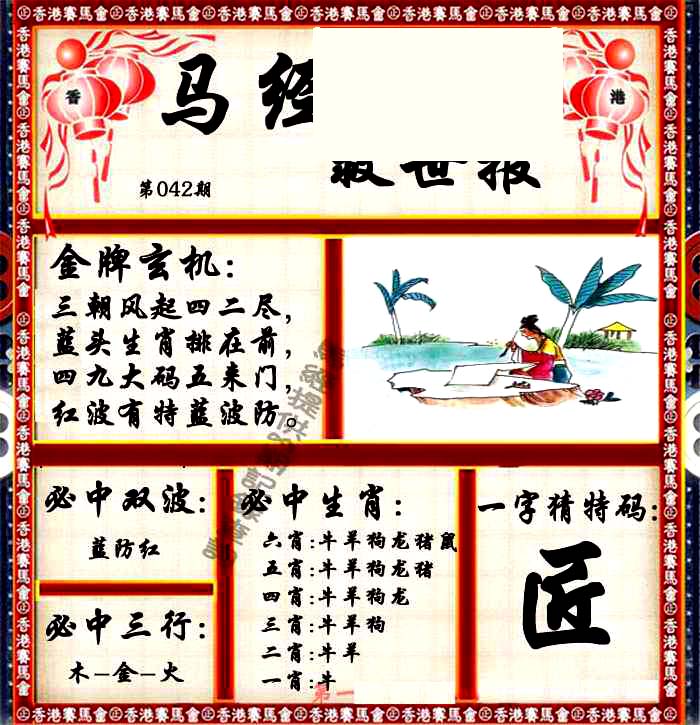 香港賽馬會
香
港
马经
救世报
第042期
金牌玄机:
三朝风起四二尽,
蓝头生肖排在前,
四九大码五来门,
红波有特蓝波防。
必中双波:
蓝防红
必中三行:
木-金-火
必中生肖:
六肖:牛羊狗龙猪鼠
五肖:牛羊狗龙猪
四肖:牛羊狗龙
三肖:牛羊狗
二肖:牛羊
一肖:牛
第一
一字猜特码:
匠